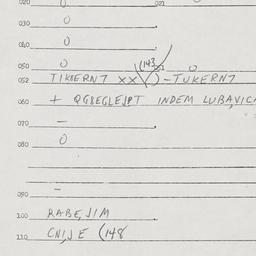 020 0 021
030 0
040 0
050 0 (143 051 0
052 TIKKERN7 XX ( ) - TUKERN7
060 + INDEM LUBAVICH
070 -
080 0
090 -
100 RABE, JIM
110 CNI, JE (148